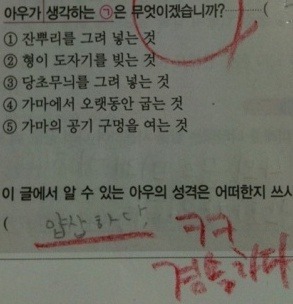 아우가 생각하는 ㉠은 무엇이겠습니까? (
① 잔뿌리를 그려 넣는 것
② 형이 도자기를 빚는 것
③ 당초무늬를 그려 넣는 것
④ 가마에서 오랫동안 굽는 것
⑤ 가마의 공기 구멍을 여는 것
이 글에서 알 수 있는 아우의 성격은 어떠한지 쓰시
( 얍산하다
ㅋㅋ
경솔하다